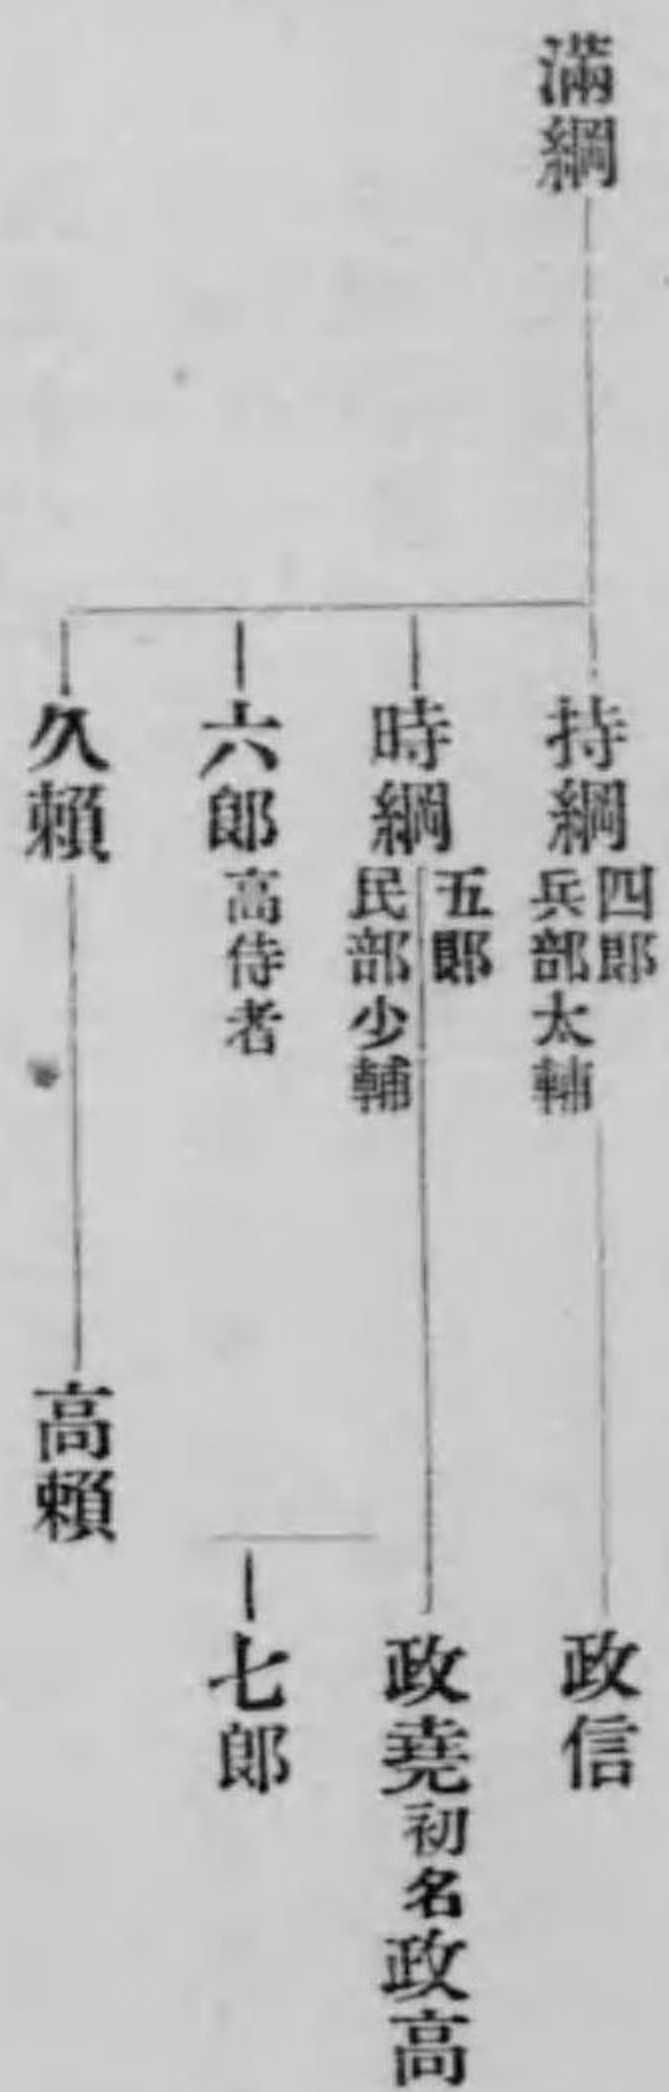 滿綱
持綱
四郎
兵部太輔
政信
時綱
五郎
民部少輔
政堯
初名
政高
六郎
高侍者
七郎
久賴
高賴